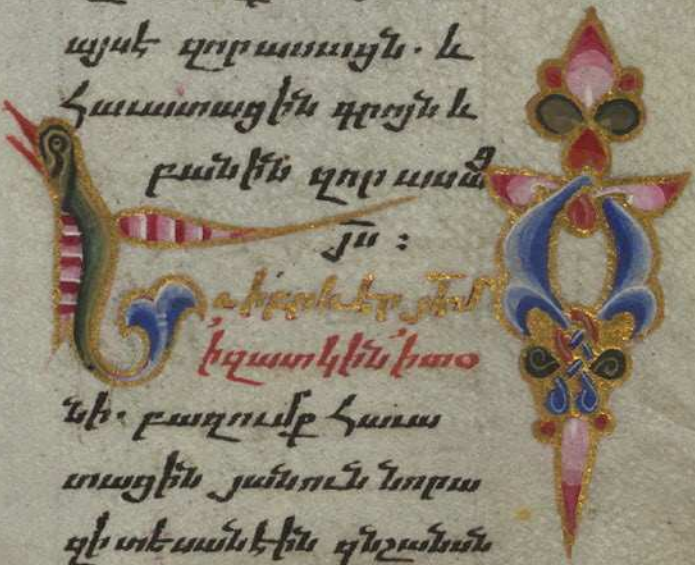 այսէ զորասացն. և
Հաւատացին գրոյն և
բանին զոր ասաց
յս :
Եւ իբրևէր յէմ
՚իզատկին ՚իտօ
նի. բազումք հաւա
տացին յանուն նորա
զի տեսանէին զնշանսն